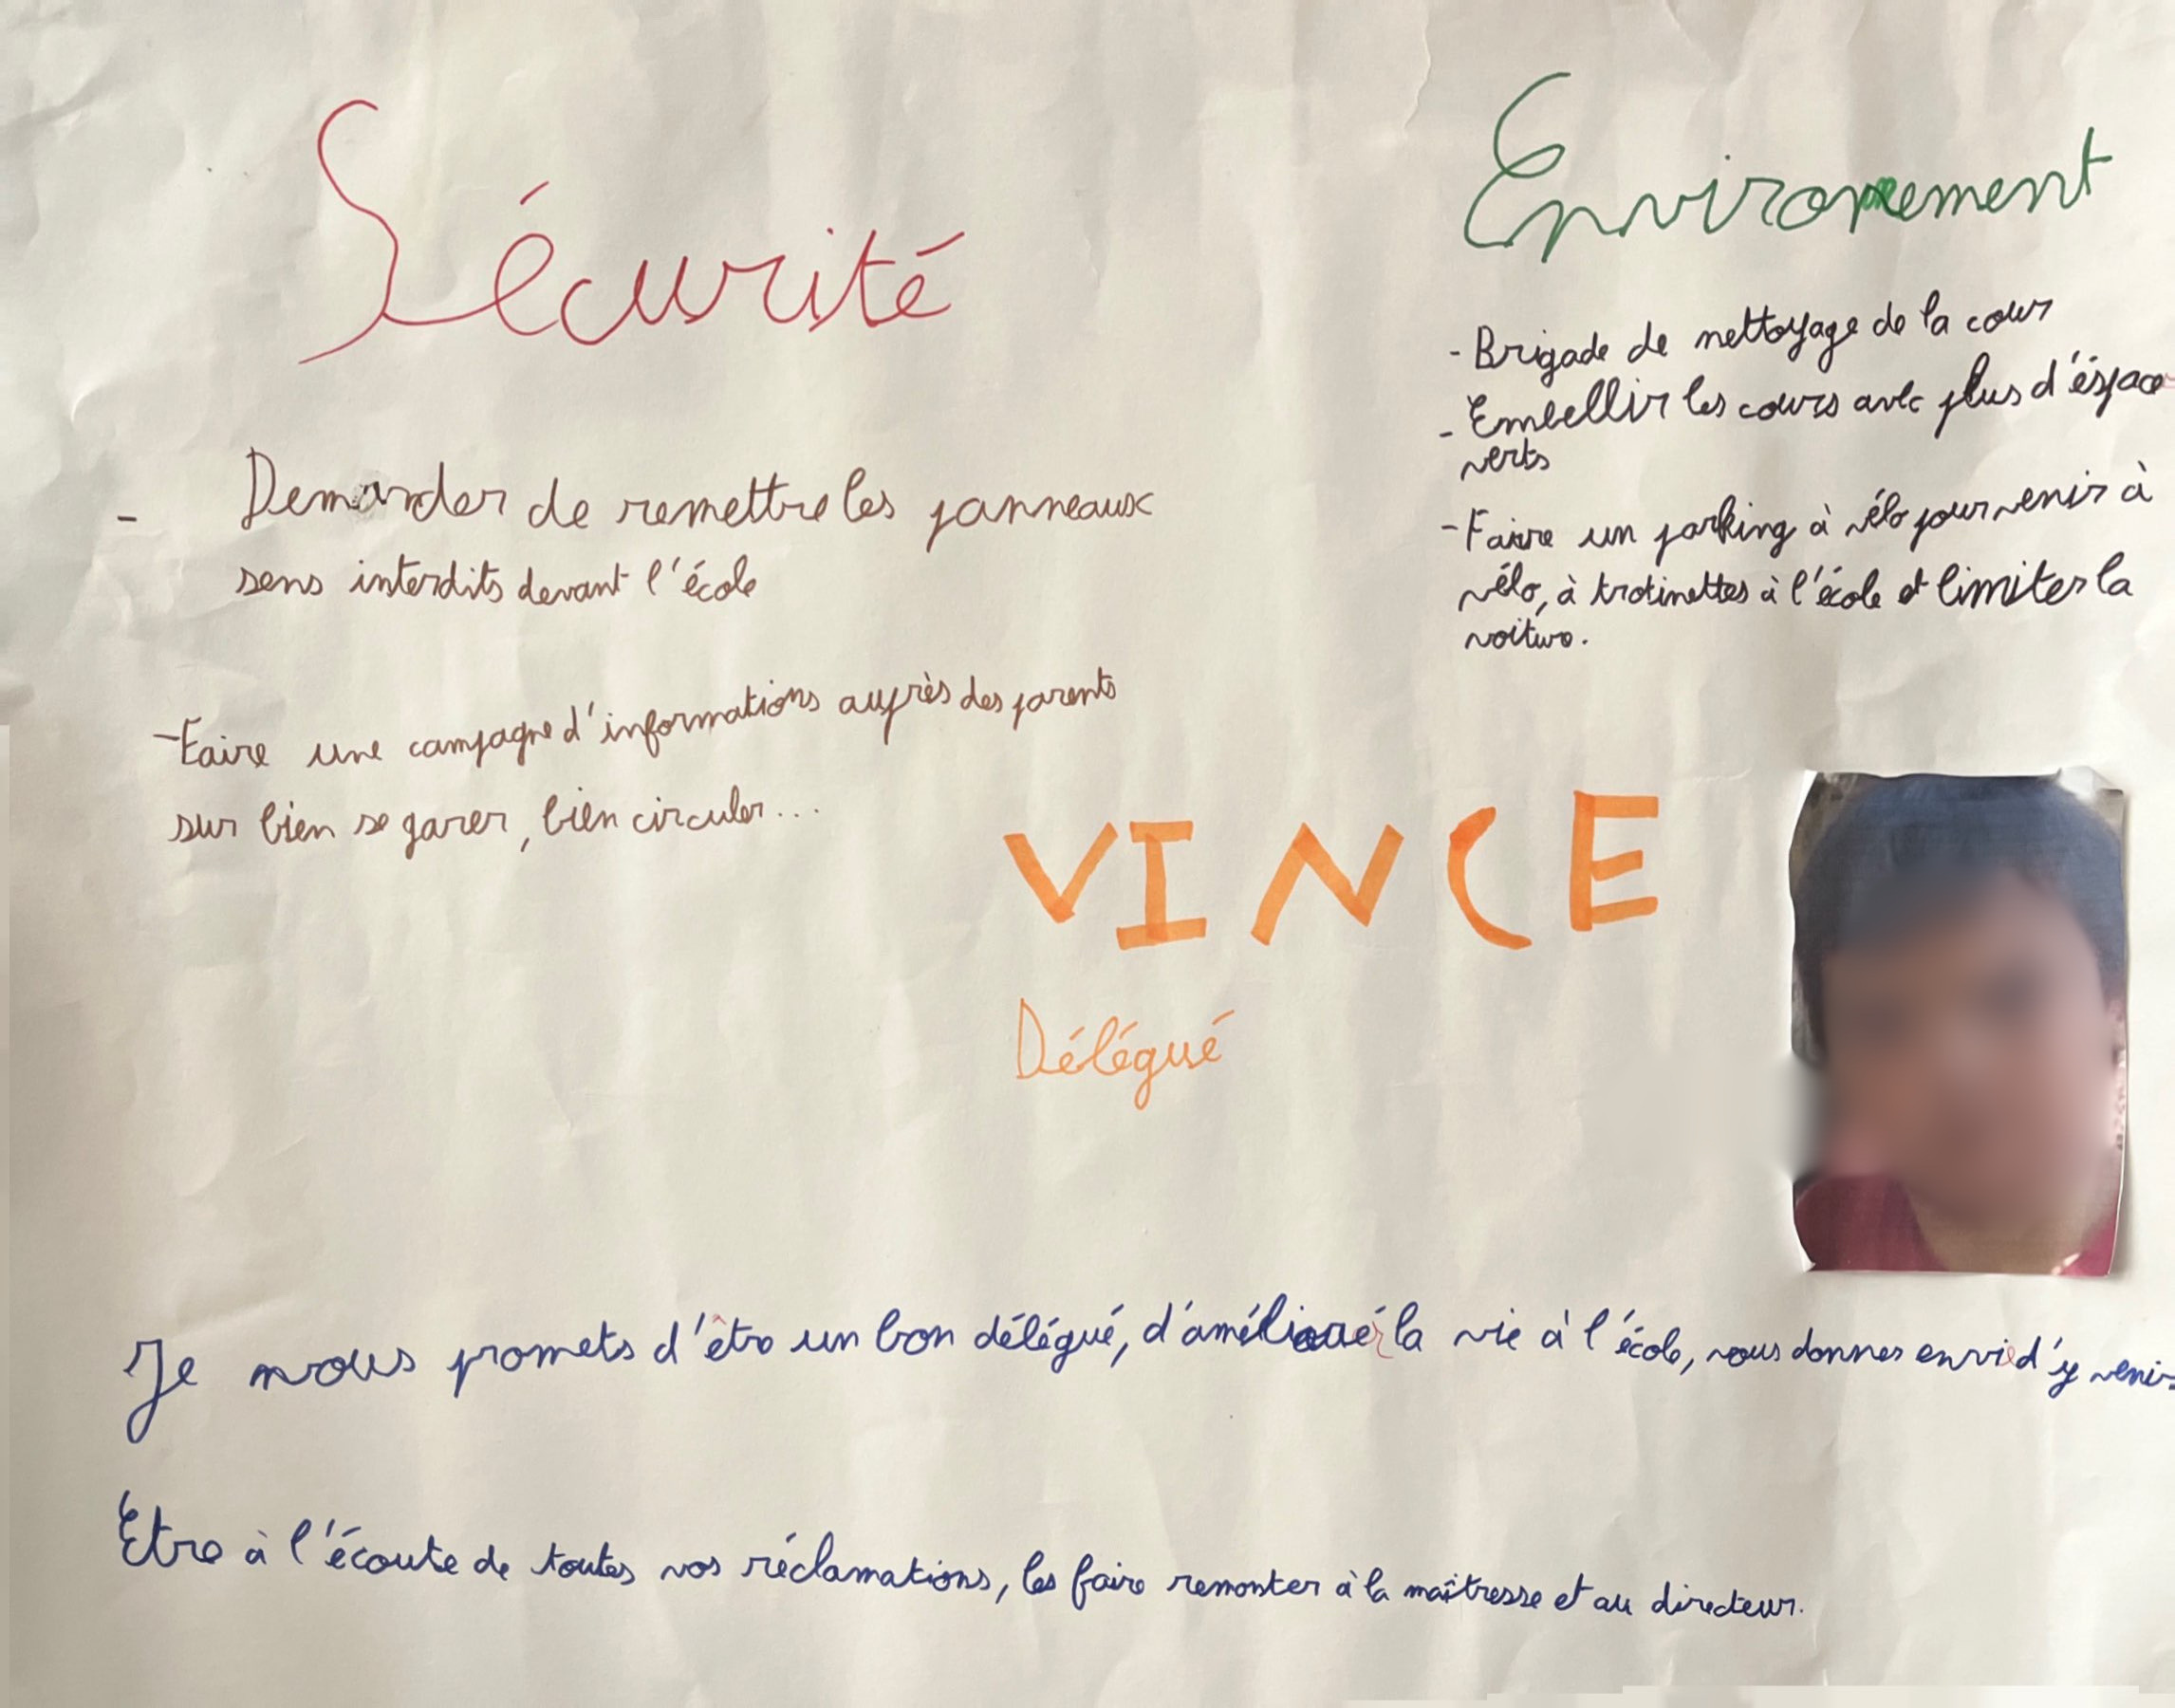 Sécurité
- Demander de remettre les panneaux
sens interdits devant l'école
- Faire une campagne d'informations auprès des parents
sur bien se garer, bien circuler...
Environnement
- Brigade de nettoyage de la cour
- Embellir les cours avec plus d'éspace
verts
- Faire un parking à vélo pour venir à
vélo, à trotinettes à l'école et limiter la
voiture.
VINCE
Délégué
Je vous promets d'être un bon délégué, d'améliorer la vie à l'école, vous donner envie d'y venir
Etre à l'écoute de toutes vos réclamations, les faire remonter à la maîtresse et au directeur.